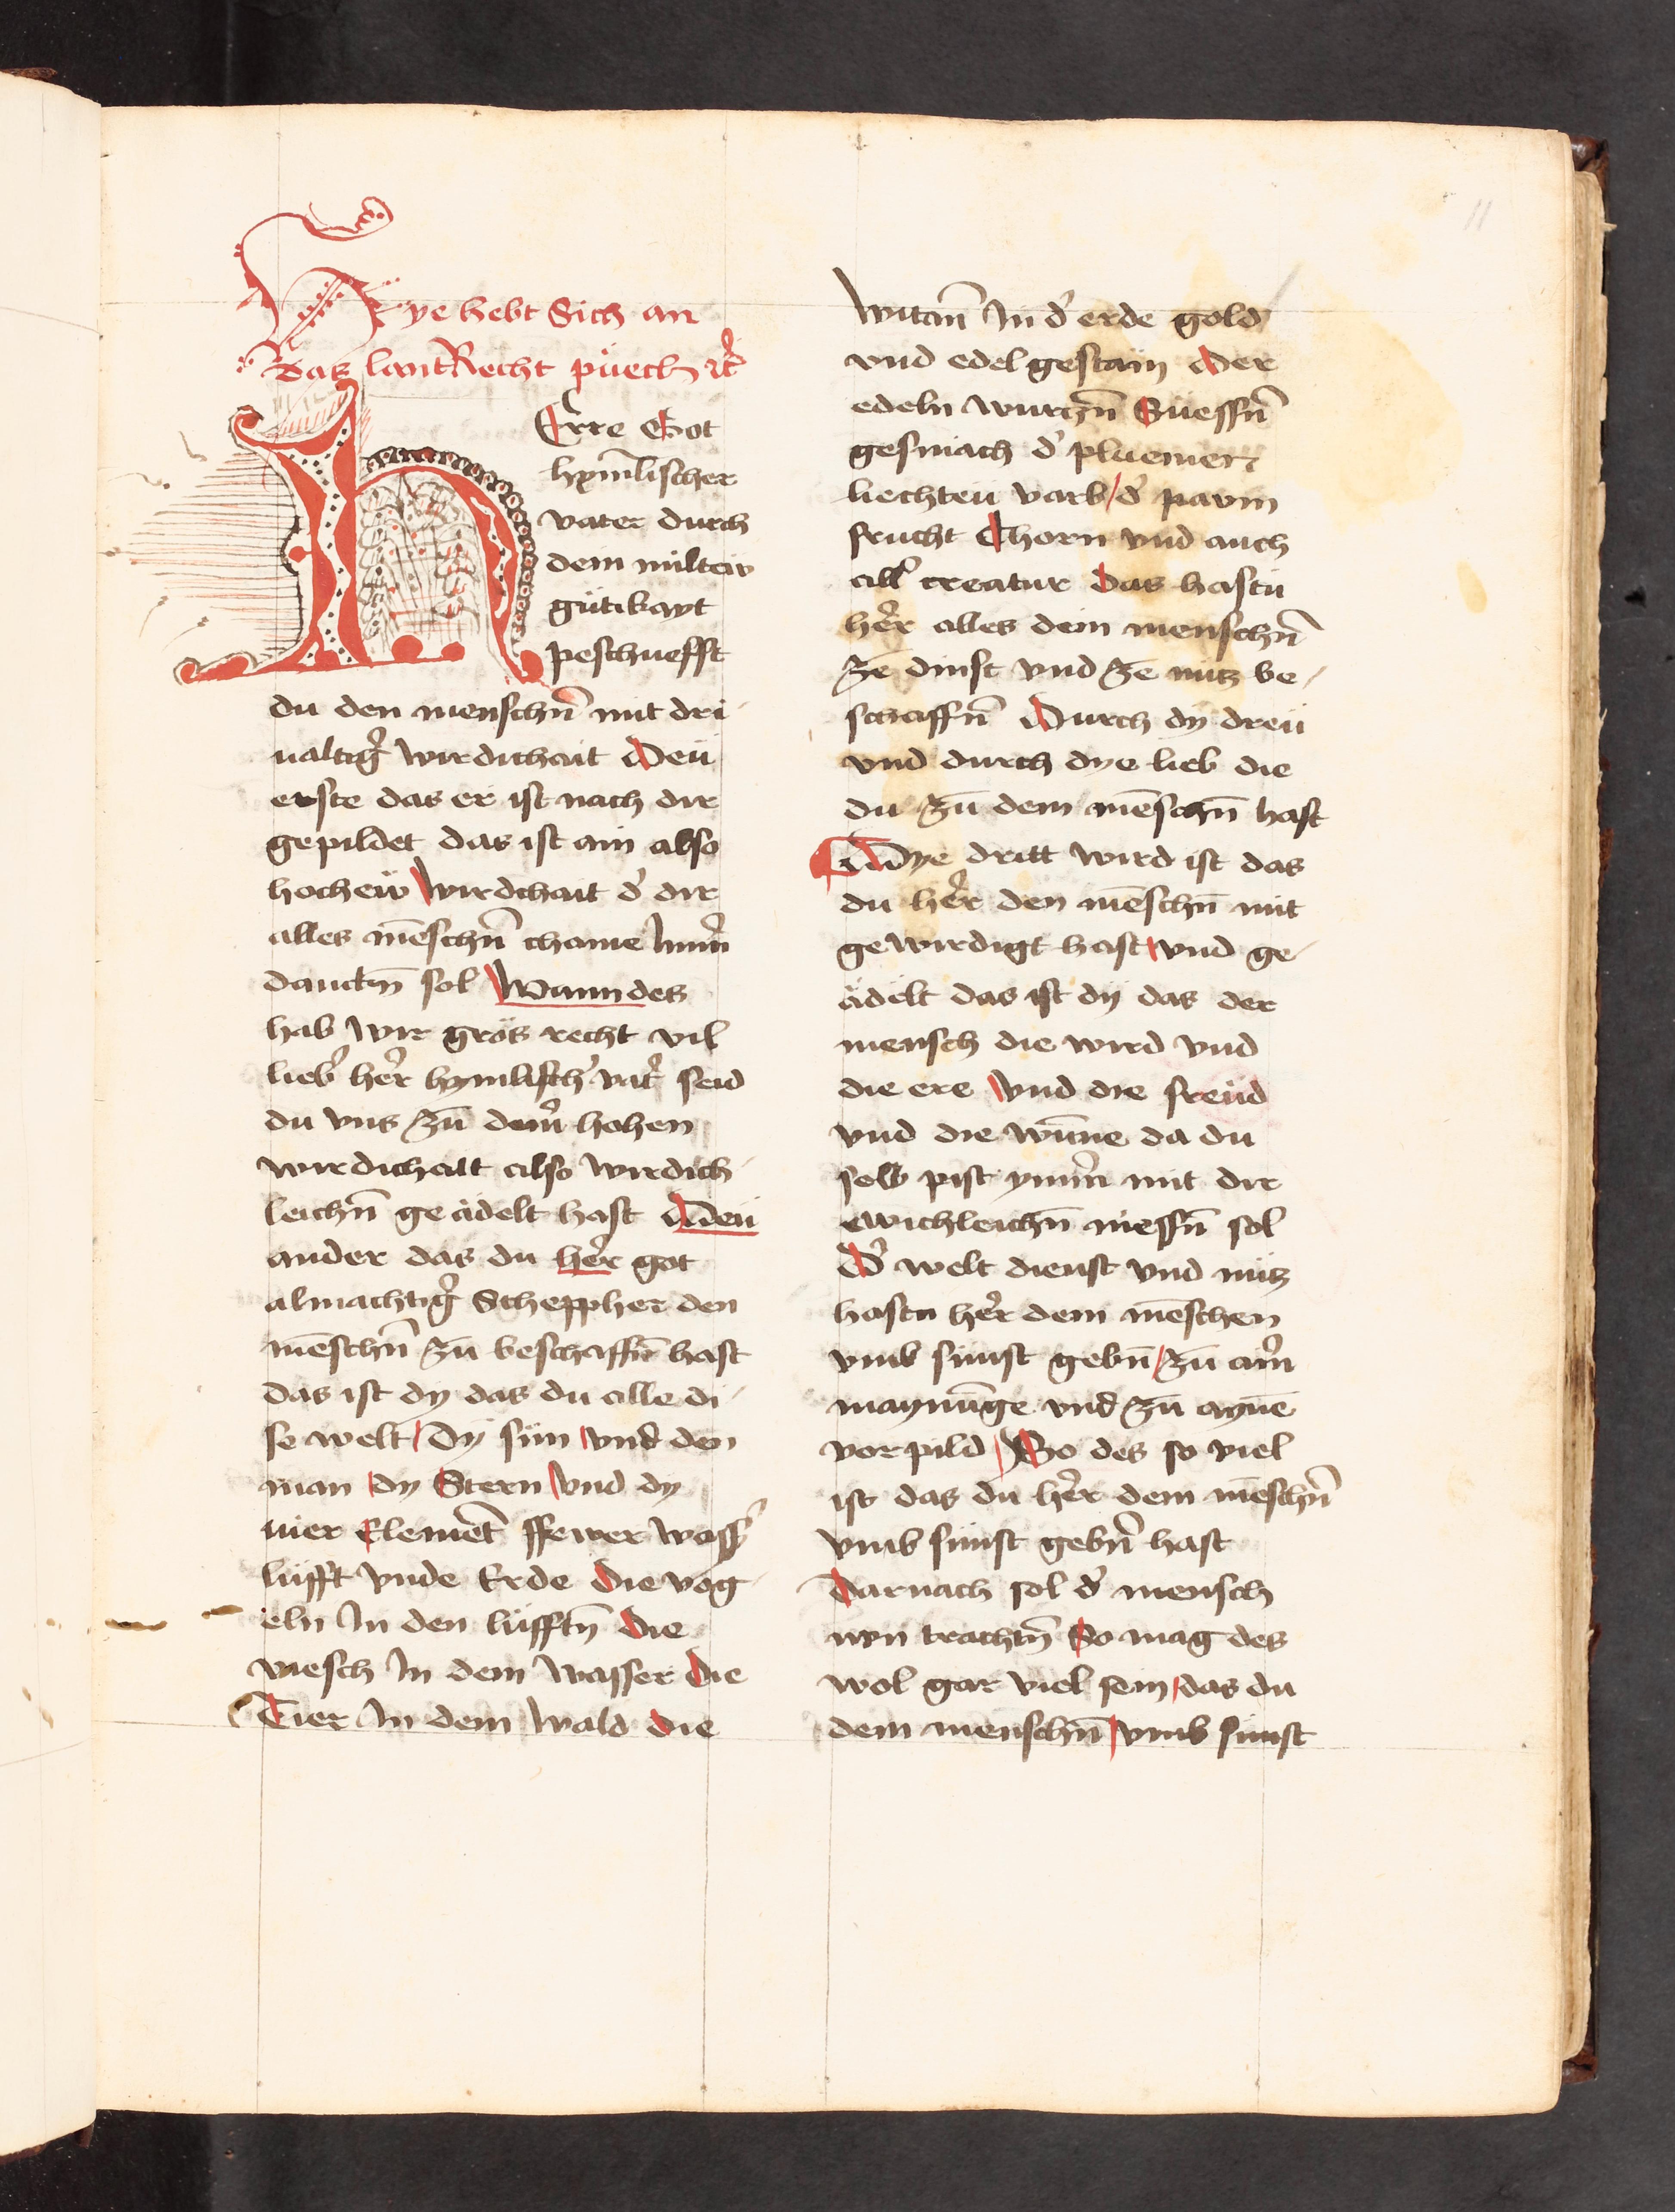 11
Hye hebt Sich an
das lantRecht pùech ꝛc̃
HErre Got
hym̄lischer
vater durch
dein milteu
gütikayt
peschuefft
du den menschn̄ mit dri
ualtig̉ wirdichait Deü
erste das er ist nach dir
gepildet das ist ain also
hocheu wirdchait d̉ dir
alles mēschn̄ chame nim̉
danckn̄ sol Wann des
hab wir grös recht vil
lieb̉ her̉ hymlisch̉ vat̉ seid
du vns zū dem̉ hohen
wirdichait also wirdich
leichn̄ geädelt hast Deü
ander das du her̉ got
almachtig̉ Scheppher den
mēschn̄ zū beschaffn̄ hast
das ist dy das du alle di
se welt Dy sün vnd den
man dy Stern vnd dy
vier Elemēt ffewer wass̉
lüfft vnde Erde Die vog
eln In den lüfftn̄ Die
viesch In dem wasser Die
Tier In dem wald die
witan̄ In d̉ erde gold
vnd edel gestain Der
edeln wurczn̄ Suessn̄
gesmach d̉ pluemen
liechteu varb d̉ pavm
frucht Chorn vnd auch
all̉ creatur Das hastu
her̉ alles dein menschn̄
ze dinst vnd ze nutz be
schaffn̄ Durch dy dreü
vnd durch dye lieb die
du zū dem mēschn̄ hast
Dye dritt wird ist das
du her̉ den mēschn̄ mit
gewirdigt hast vnd ge
ädelt das ist dy das der
mensch die wird vnd
die ere vnd die freüd
vnd die wūne da du
selb pist ymm̉ mit dir
ewichleichn̄ niessn̄ sol
D̉ welt dienst vnd nutz
hastu her̉ dem mēschen
vmb sünst gebn̄ zū aim̉
maynūnge vnd zū aynē
vorpild So des so viel
ist das du her̉ dem mēschn̄
vmb sünst gebn̄ hast
Darnach sol d̉ mensch
nyn trachtn̄ So mag des
wol gar viel sein das du
dem menschn̄ vmb sünst